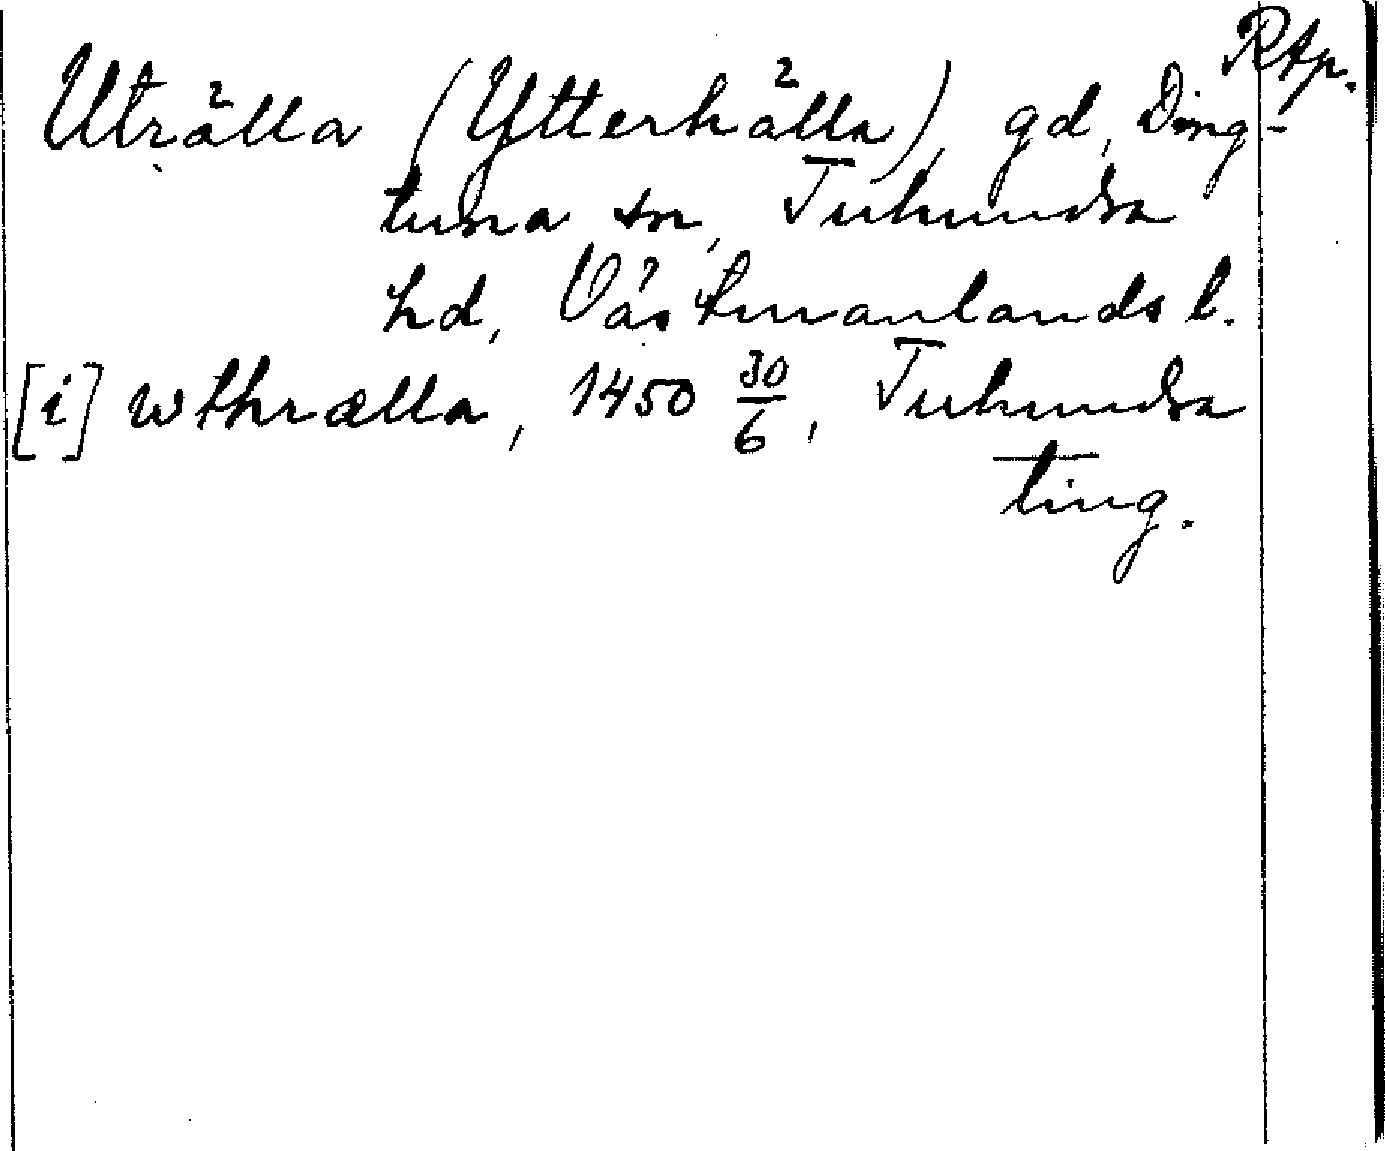 Rtp.
Uträlla (Ytterhälla), gd, Ding-
tuna sn, Tuhundra
hd, Västmanlands l.
[i] wthrælla, 1450 30/6, Tuhundra
ting.